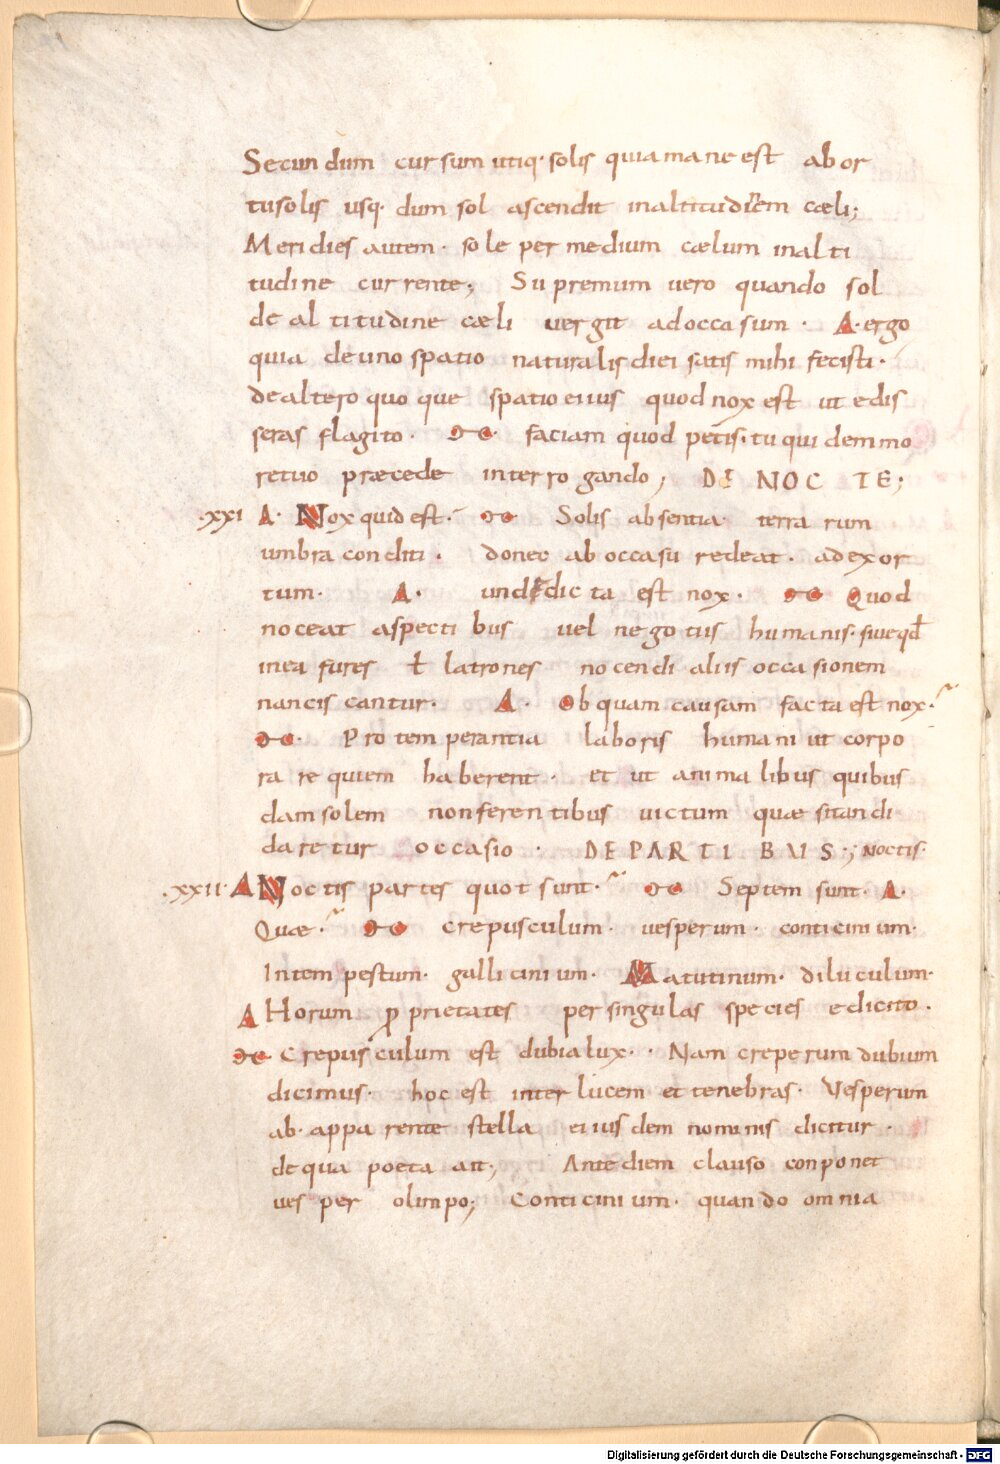 Secundum cursum utiq· solis quia mane est ab or
tu solis usq· dum sol ascendit in altitudinem cæli;
Meridies autem · sole per medium cælum in alti
tudine currente; Supremum vero quando sol
de altitudine cæli vergit ad occasum · A· ergo
quia de uno spatio naturalis diei satis mihi fecisti·
de altero quoque spatio eius quod nox est ut edis
seras flagito · faciam quod petis· tu quidem mo
re tuo præcede interrogando; DE NOCTE;
·XXI A· Nox quid est· Solis absentia terrarum
umbra conditi · donec ab occasu redeat · ad exor
tum· A· unde dicta est nox · Quod
noceat aspectibus vel negotiis humanis· sive qđ
in ea fures ł latrones nocendi aliis occasionem
nanciscantur· A· Ob quam causam facta est nox·
Pro temperantia laboris humani ut corpo
ra requiem haberent · et ut animalibus quibus
dam solem non ferentibus victum quæsitandi
daretur occasio · DE PARTIBUS·; NOCTIS·
·XXII· A Noctis partes quot sunt· Septem sunt· A·
Quæ· crepusculum· vesperum· conticinium·
Intempestum· gallicinium· Matutinum· diluculum·
A Horum ꝓprietates per singulas species edicito ·
Crepusculum est dubia lux· · Nam creperum dubium
dicimus· hoc est inter lucem et tenebras· Vesperum
ab· apparente stella eiusdem nominis dicitur ·
de qua poeta ait; Ante diem clauso conponet
vesper olimpo; Conticinium· quando omnia
Digitalisierung gefördert durch die Deutsche Forschungsgemeinschaft - DFG